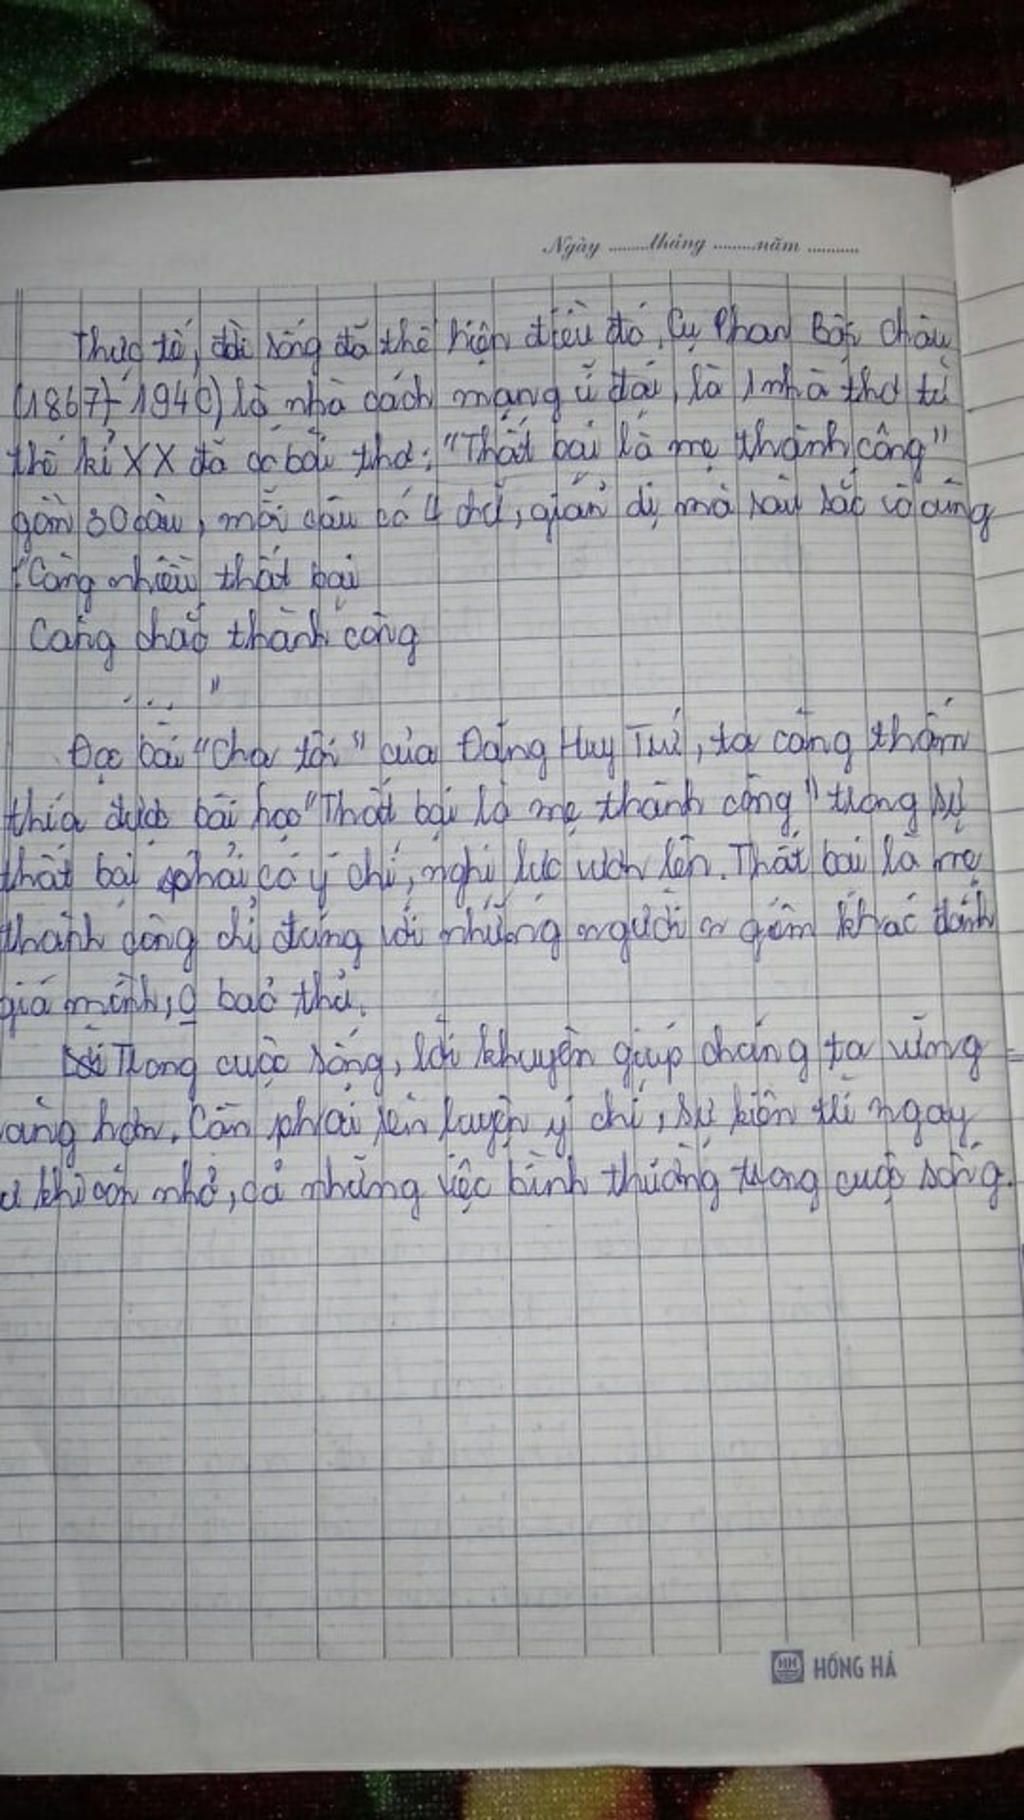 Ngày ........tháng ........năm ..........
Thực tế, đời sống đã thể hiện điều đó. Cụ Phan Bội Châu
(1867-1940) là nhà cách mạng vĩ đại, là 1 nhà thơ từ
thế kỉ XX đã có bài thơ: "Thất bại là mẹ thành công"
gồm 30 câu, mỗi câu có 4 chữ, giản dị mà sâu sắc vô cùng
"Càng nhiều thất bại
Càng chắc thành công
... "
Đọc bài "Cha tôi" của Đặng Huy Trứ, ta càng thấm
thía được bài học "Thất bại là mẹ thành công" trong sự
thất bại phải có ý chí, nghị lực vươn lên. Thất bại là mẹ
thành công chỉ đúng với những người nghiêm khắc đánh
giá mình, bảo thủ.
Trong cuộc sống, lời khuyên giúp chúng ta vững
vàng hơn. Cần phải rèn luyện ý chí, sự kiên trì ngay
từ khi còn nhỏ, cả những việc bình thường trong cuộc sống.
HH HỒNG HÀ